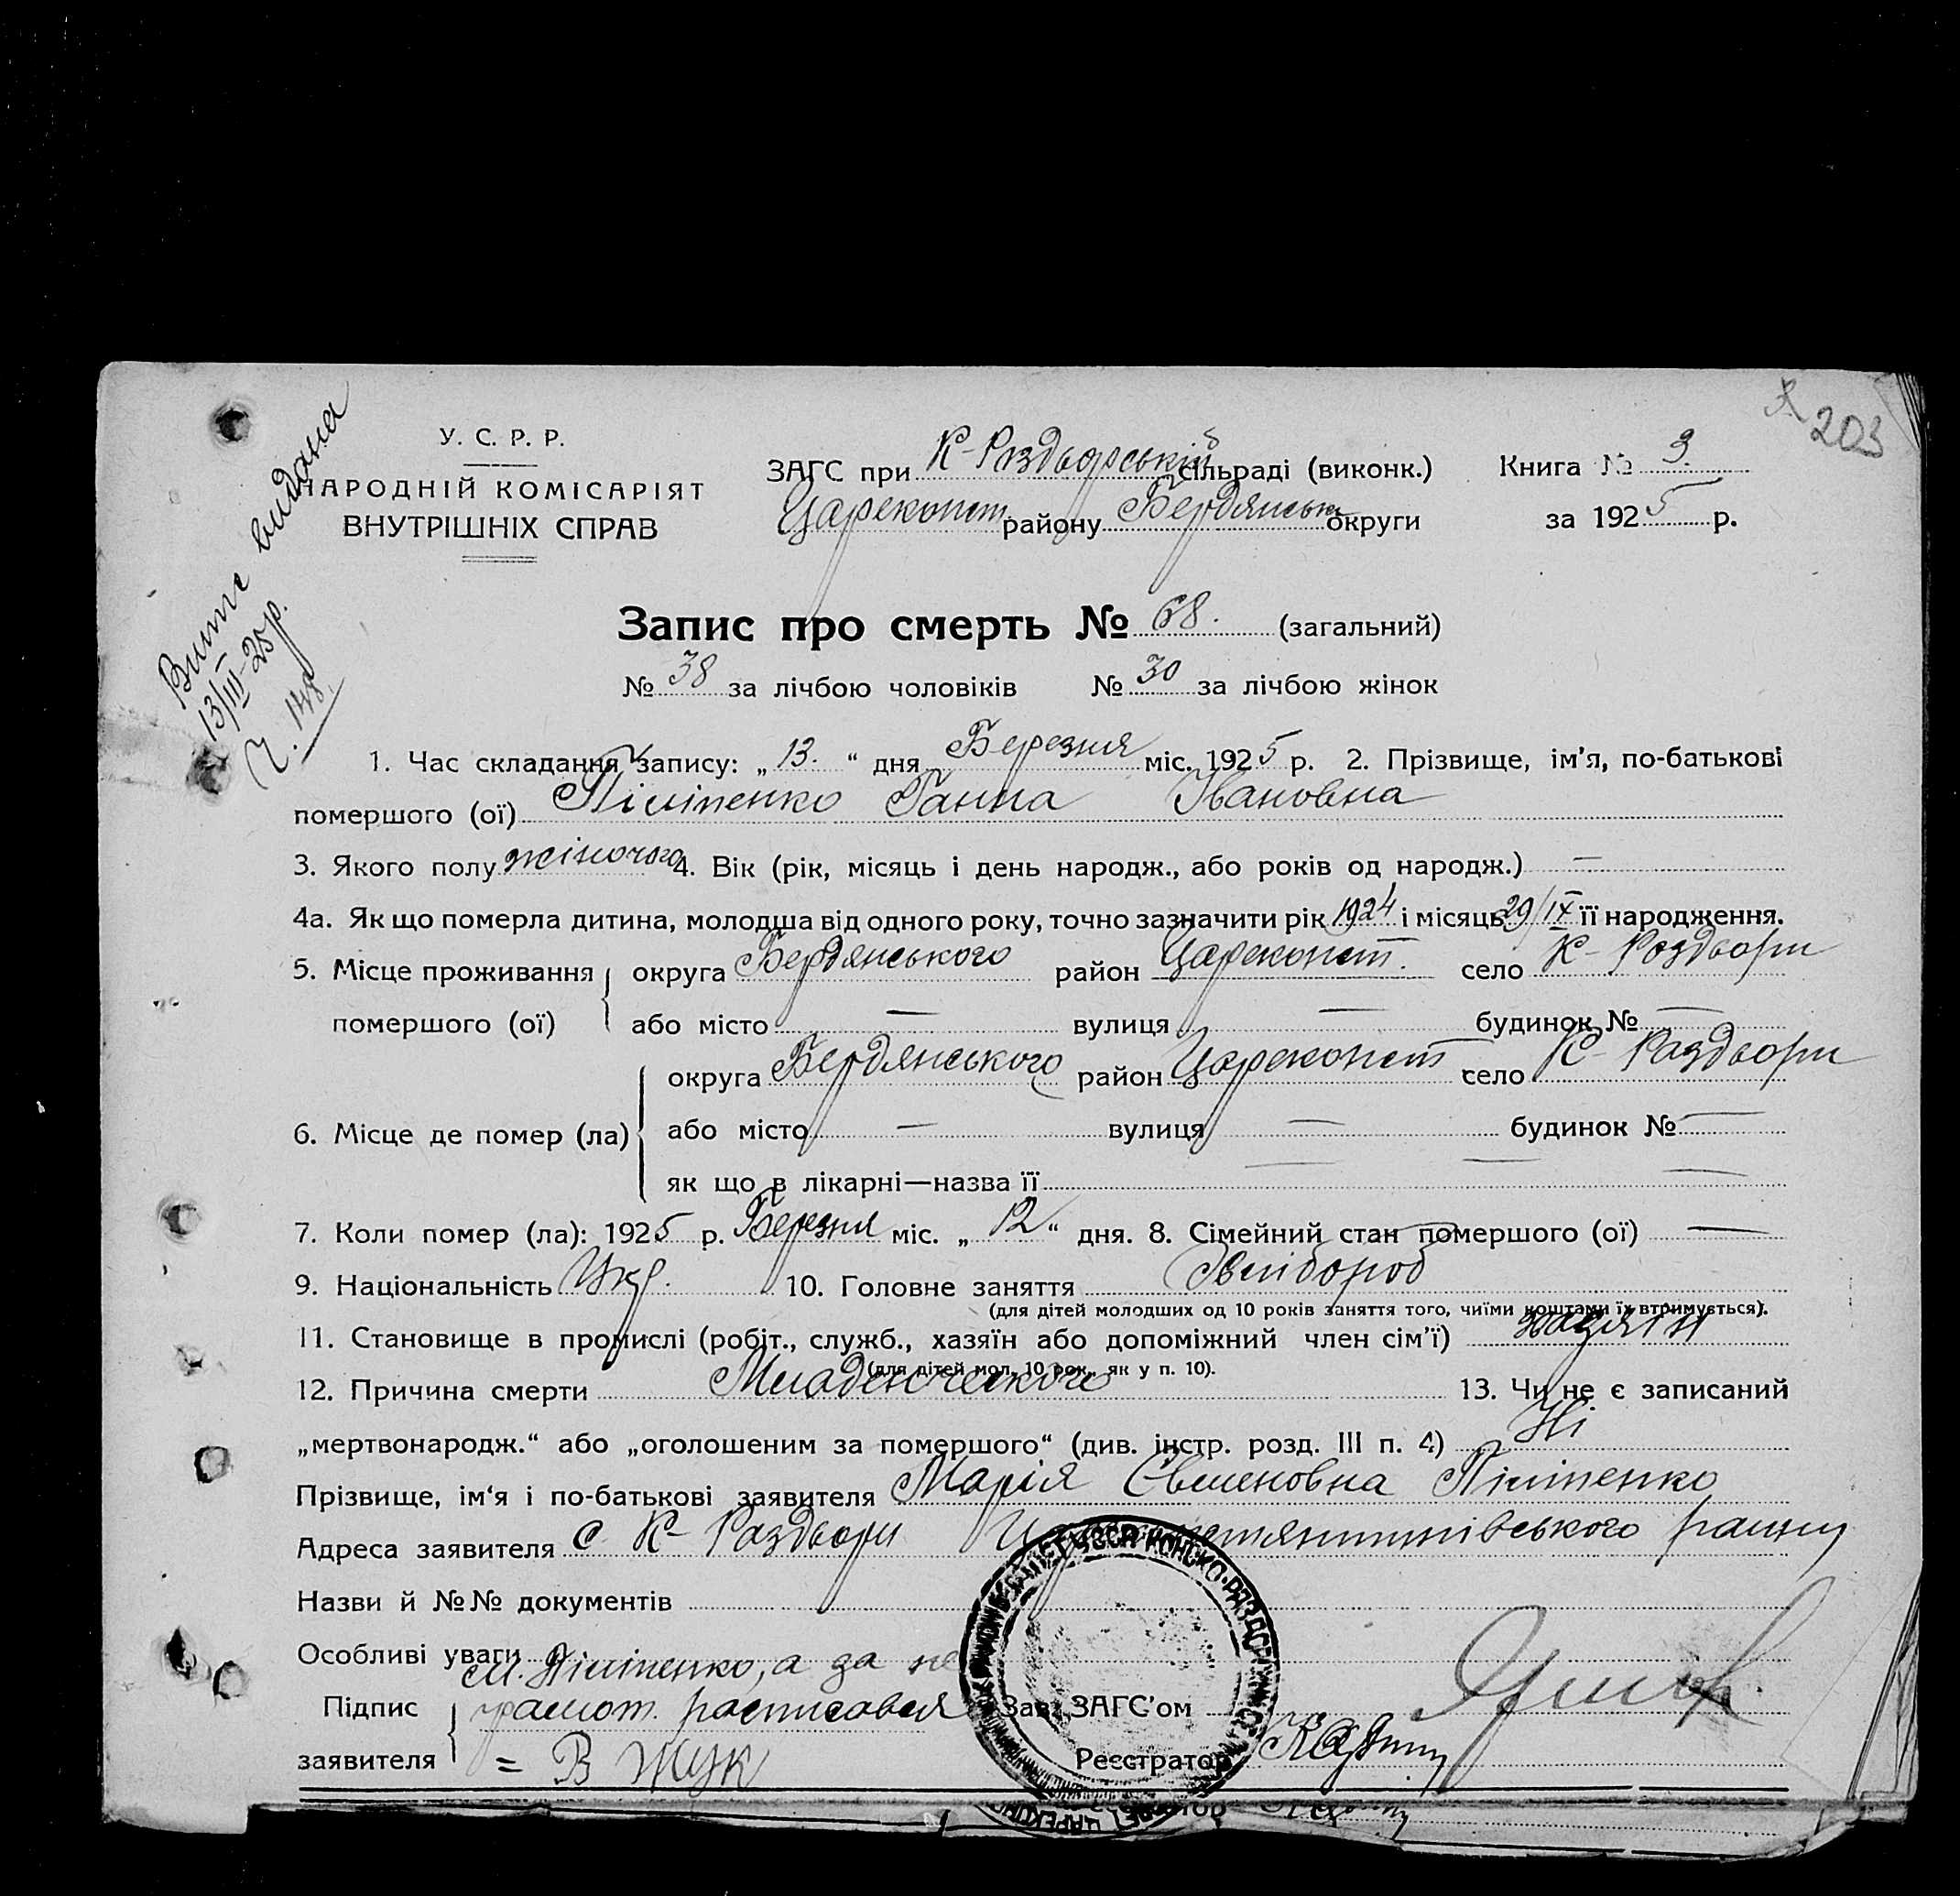 203
Витяг видана
13/III-25р.
Ч. 148
У. С. Р. Р.
НАРОДНІЙ КОМІСАРІЯТ
ВНУТРІШНІХ СПРАВ
ЗАГС при К-Роздорській сільраді (виконк.)
Цареконст. району Бердянськ округи
Книга № 3.
за 1925 р.
Запис про смерть № 68. (загальний)
№ 38 за лічбою чоловіків № 30 за лічбою жінок
1. Час складання запису: „13.“ дня Березня міс. 1925 р. 2. Прізвище, ім'я, по-батькові
помершого (ої) Піліпенко Ганна Івановна
3. Якого полу жіночого 4. Вік (рік, місяць і день народж., або років од народж.) —
4а. Як що померла дитина, молодша від одного року, точно зазначити рік 1924 і місяць 29/IX її народження.
5. Місце проживання округа Бердянського район Цареконст. село К-Роздори
помершого (ої) або місто — вулиця — будинок № —
округа Бердянського район Цареконст село К-Раздори
6. Місце де помер (ла) або місто — вулиця — будинок № —
як що в лікарні—назва її — — —
7. Коли помер (ла): 1925 р. Березня міс. „12“ дня. 8. Сімейний стан помершого (ої) —
9. Національність Укр. 10. Головне заняття Хлібороб
(для дітей молодших од 10 років заняття того, чиїми коштами їх втримується).
11. Становище в промислі (робіт., служб., хазяїн або допоміжний член сім'ї) хазяїн
(для дітей мол. 10 рок., як у п. 10).
12. Причина смерти Младенческого 13. Чи не є записаний
„мертвонародж.“ або „оголошеним за помершого“ (див. інстр. розд. III п. 4) Ні
Прізвище, ім'я і по-батькові заявителя Марія Семеновна Піліпенко
Адреса заявителя с К-Раздори Цареконстянтинівського району
Назви й №№ документів
Особливі уваги
Підпис заявителя М. Піліпенко, а за не
грамот. расписався
= В Жук
Зав. ЗАГС'ом
Реєстратор